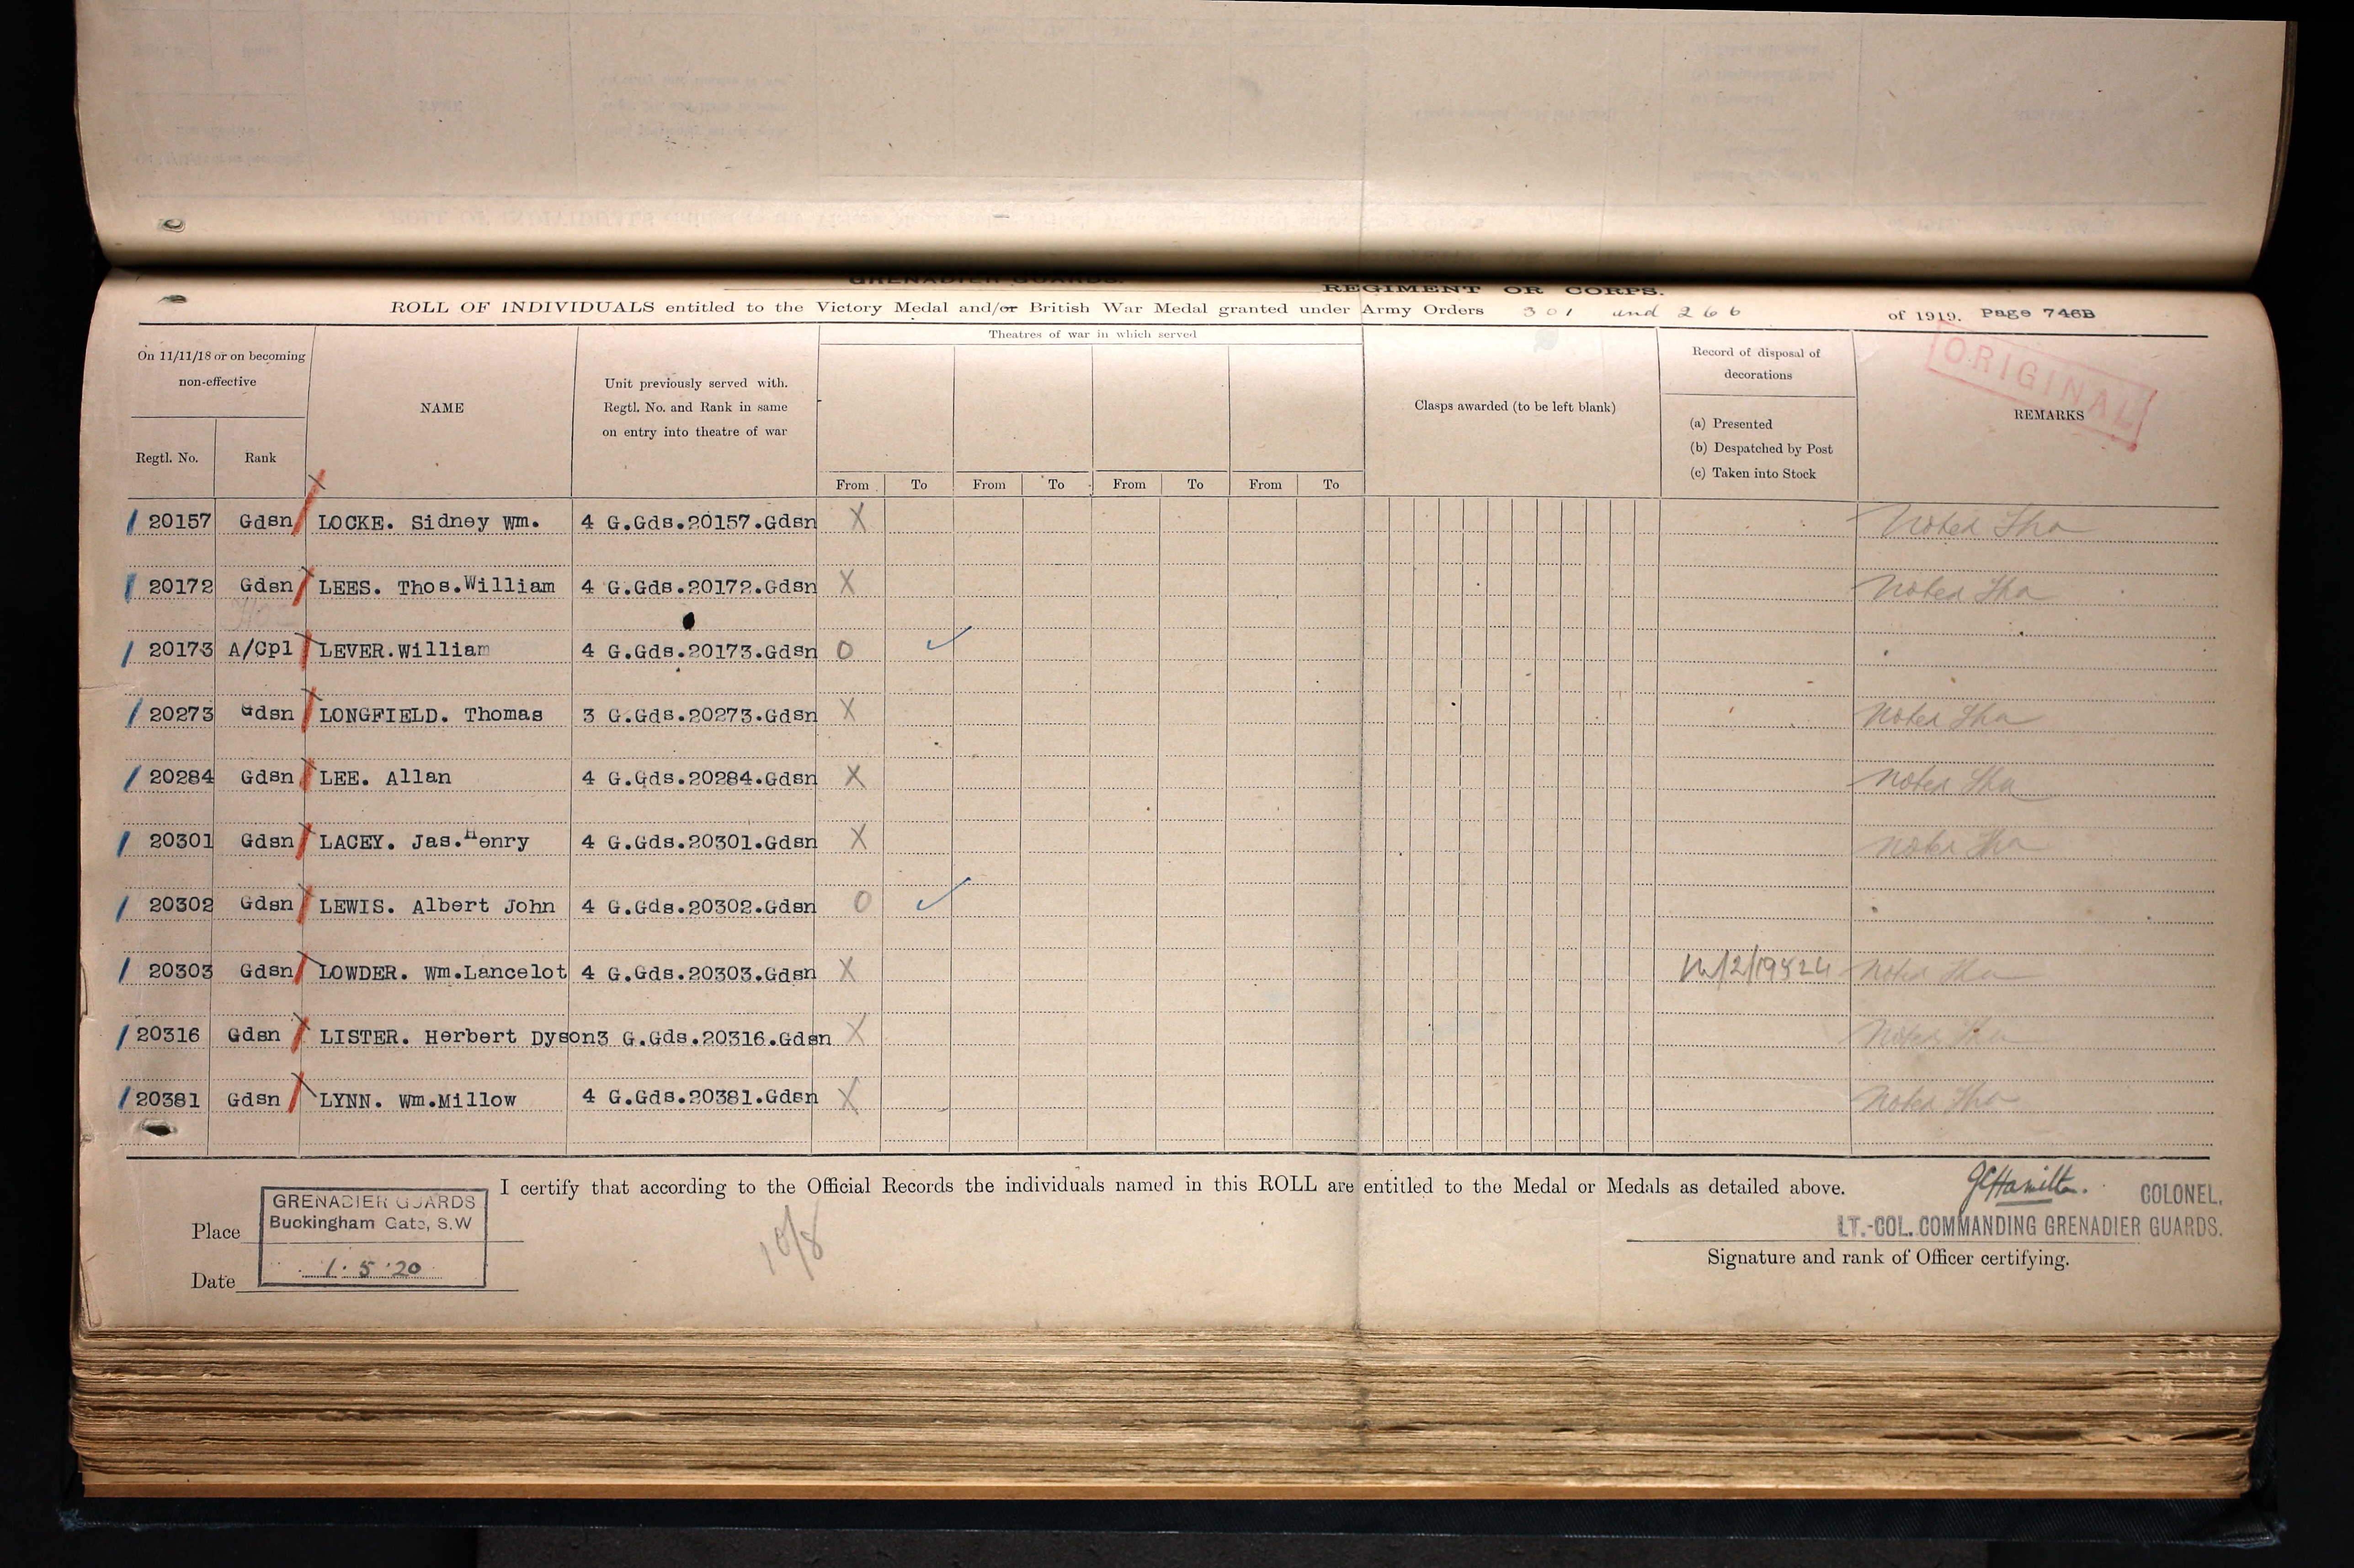 GRENADIER GUARDS. REGIMENT OR CORPS.
ROLL OF INDIVIDUALS entitled to the Victory Medal and/or British War Medal granted under Army Orders 301 and 266 of 1919. Page 746B
ORIGINAL
On 11/11/18 or on becoming non-effective
Regtl. No.
Rank
NAME
Unit previously served with.
Regtl. No. and Rank in same
on entry into theatre of war
Theatres of war in which served
From To From To From To From To
Clasps awarded (to be left blank)
Record of disposal of
decorations
(a) Presented
(b) Despatched by Post
(c) Taken into Stock
REMARKS
20157 Gdsn LOCKE. Sidney Wm. 4 G.Gds.20157.Gdsn X Noted
20172 Gdsn LEES. Thos.William 4 G.Gds.20172.Gdsn X Noted
20173 A/Cpl LEVER.William 4 G.Gds.20173.Gdsn O ✓
20273 Gdsn LONGFIELD. Thomas 3 G.Gds.20273.Gdsn X Noted
20284 Gdsn LEE. Allan 4 G.Gds.20284.Gdsn X Noted
20301 Gdsn LACEY. Jas.Henry 4 G.Gds.20301.Gdsn X Noted
20302 Gdsn LEWIS. Albert John 4 G.Gds.20302.Gdsn O ✓
20303 Gdsn LOWDER. Wm.Lancelot 4 G.Gds.20303.Gdsn X Noted
20316 Gdsn LISTER. Herbert Dyson 3 G.Gds.20316.Gdsn X Noted
20381 Gdsn LYNN. Wm.Millow 4 G.Gds.20381.Gdsn X Noted
I certify that according to the Official Records the individuals named in this ROLL are entitled to the Medal or Medals as detailed above.
GRENADIER GUARDS
Buckingham Gate, S.W
Place
1.5.20
Date
10/8
Hamilton. COLONEL.
LT.-COL. COMMANDING GRENADIER GUARDS.
Signature and rank of Officer certifying.